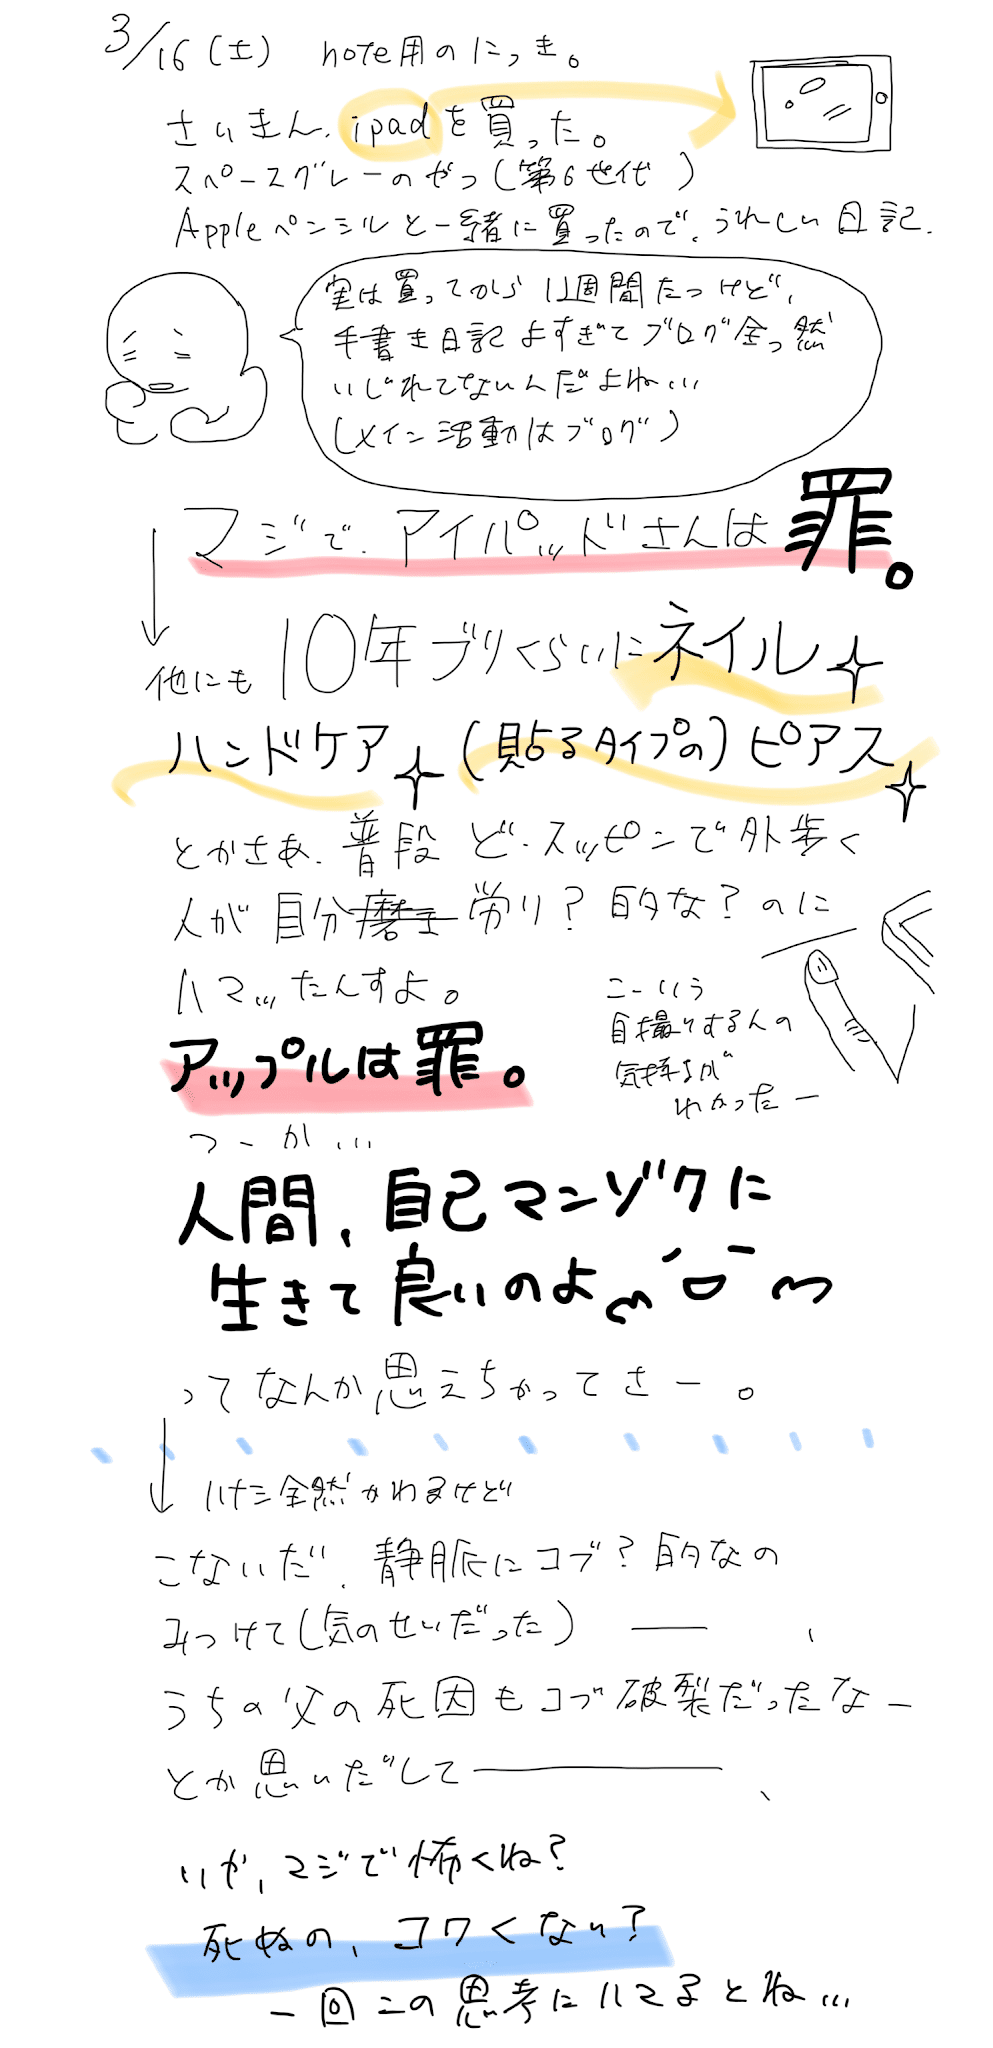 3/16(土) note用のにっき。
さいきん、ipadを買った。
スペースグレーのやつ(第6世代)
Appleペンシルと一緒に買ったので、うれしい日記.
実は買ってから1週間たつけど、
手書き日記よすぎてブログ全っ然
いじれてないんだよね…
(メイン活動はブログ)
マジで、アイパッドさんは罪。
他にも10年ブリくらいにネイル
ハンドケア(貼るタイプの)ピアス
とかさあ、普段ど・スッピンで外歩く
人が自分磨き労り?的な?のに
ハマッたんすよ。
こーいう
自撮りする人の
気持ちが
わかったー
アップルは罪。
つーか…
人間、自己マンゾクに
生きて良いのよ
ってなんか思えちゃってさー。
ハナシ全然かわるけど
こないだ、静脈にコブ?的なの
みつけて(気のせいだった)――、
うちの父の死因もコブ破裂だったなー
とか思いだして――――、
いや、マジで怖くね?
死ぬの、コワくない?
一回この思考にハマるとね…